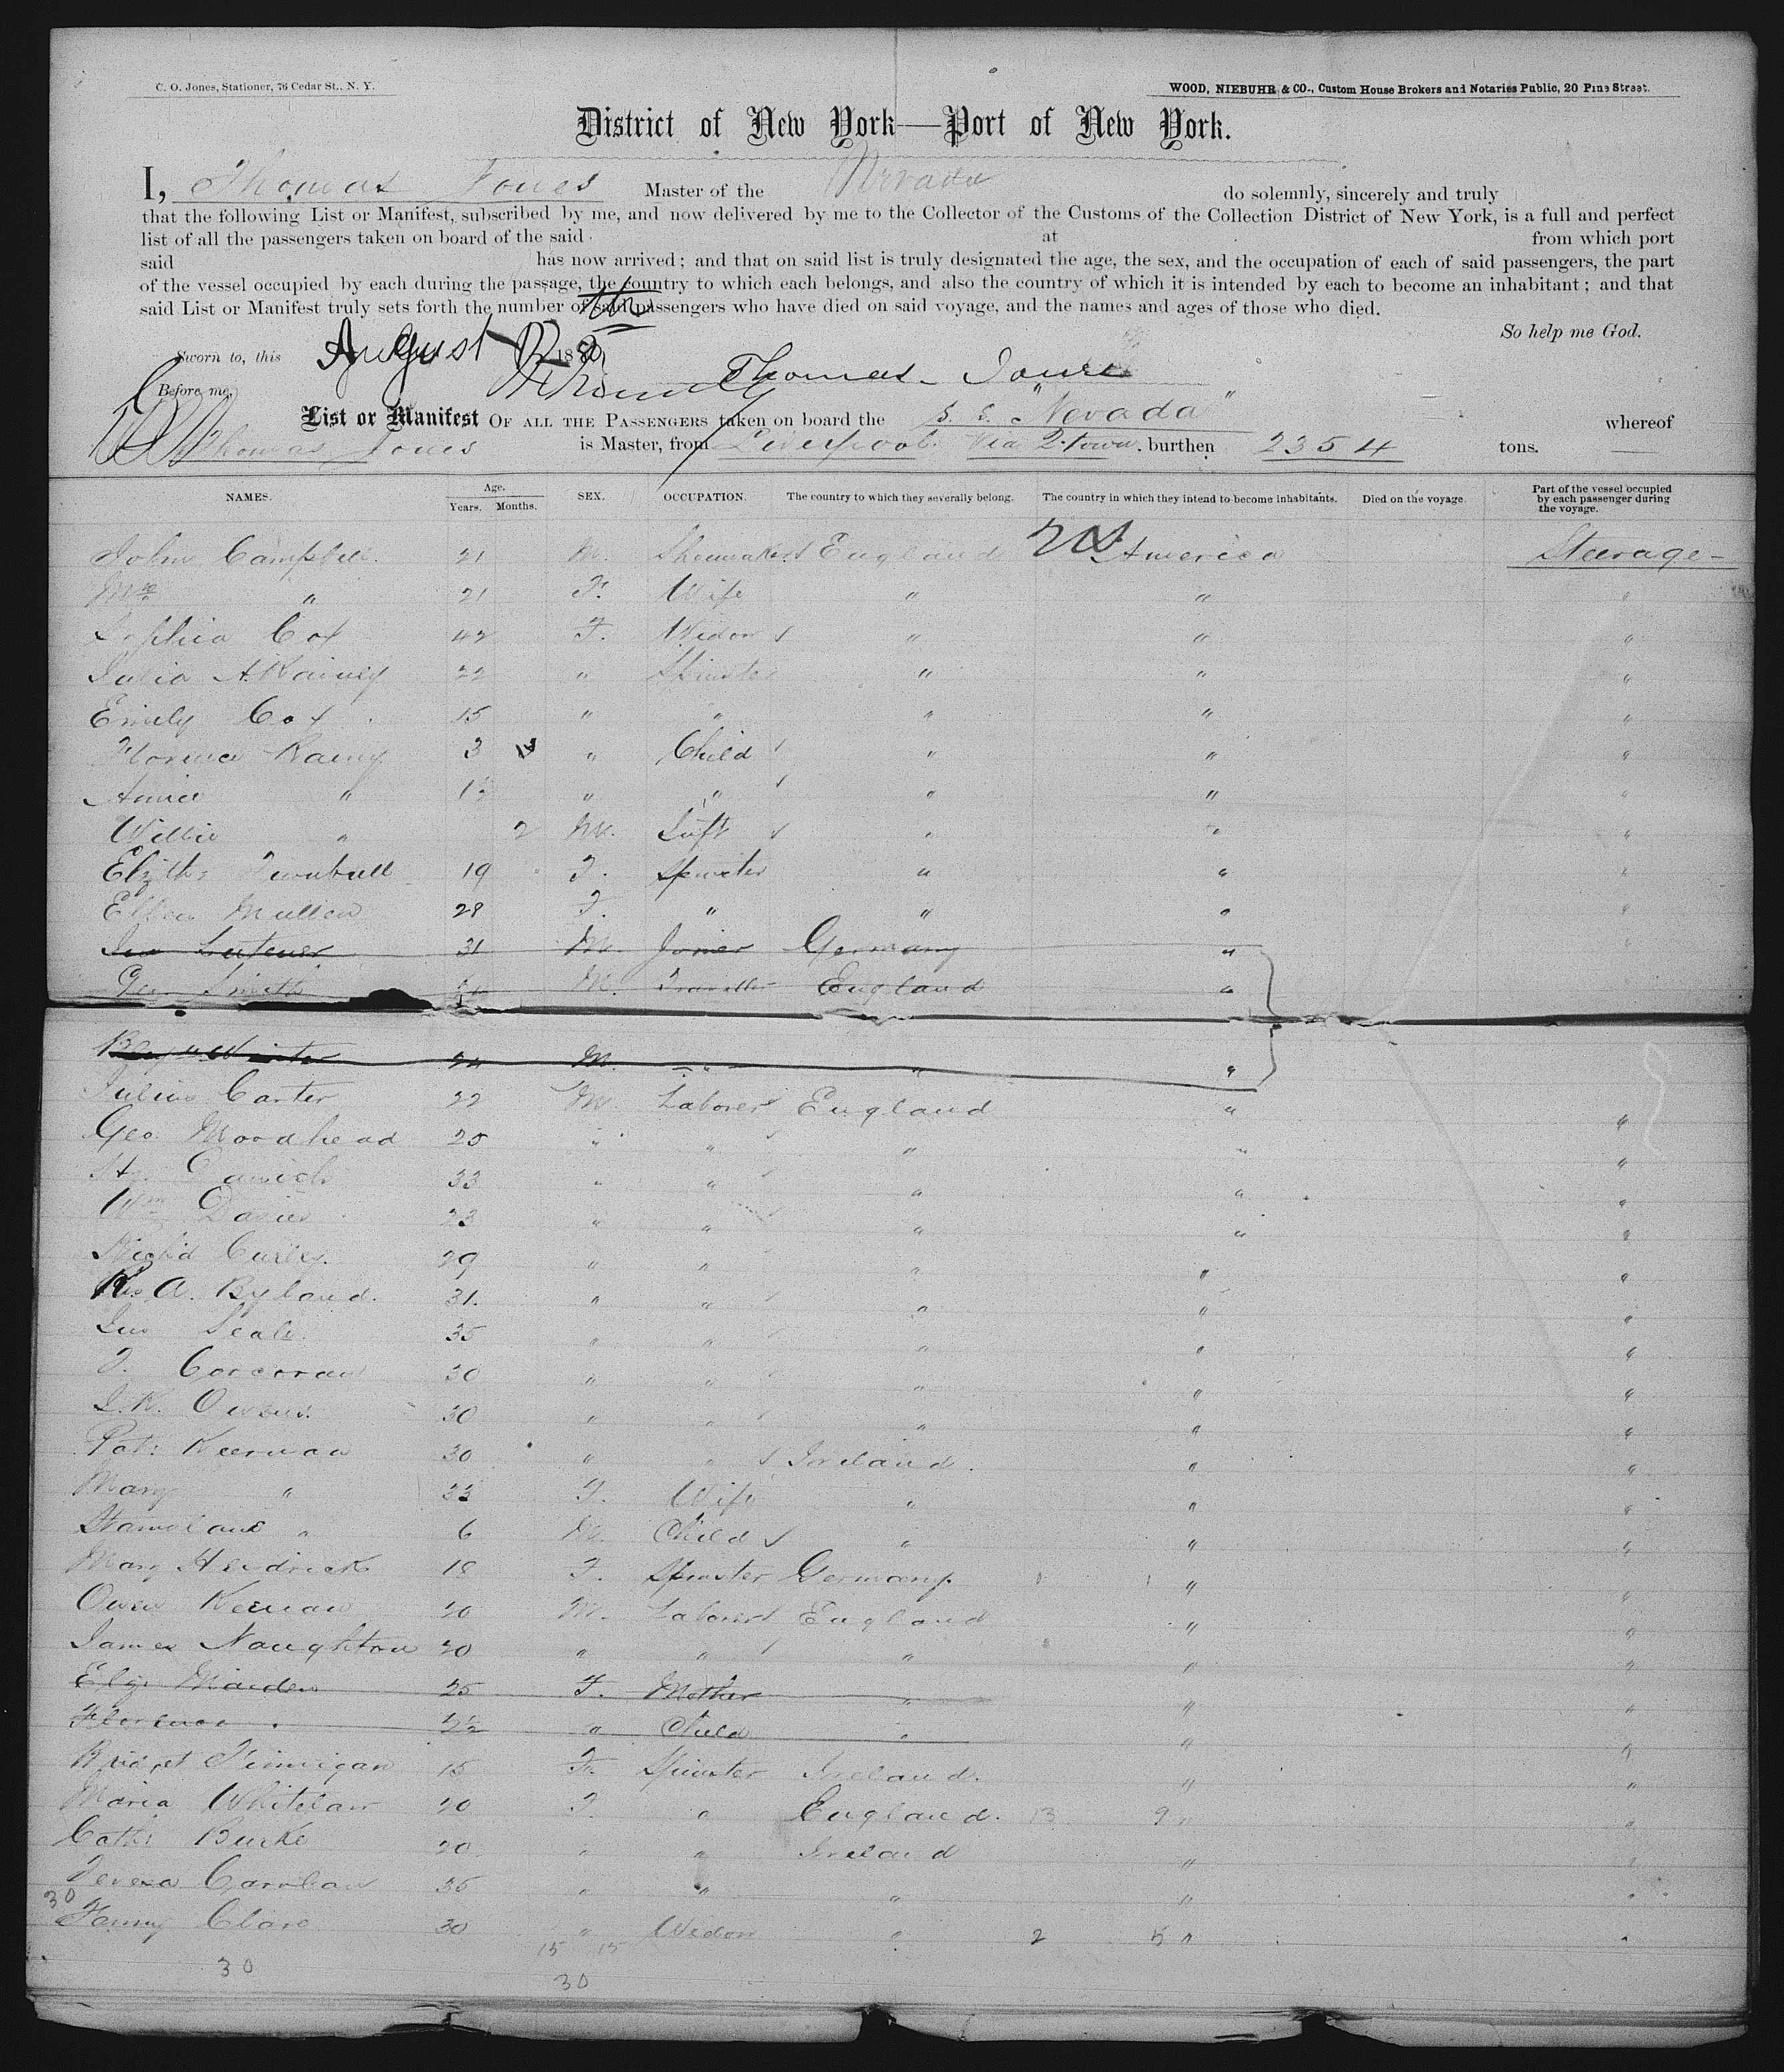 C. O. Jones, Stationer, 76 Cedar St., N. Y.
WOOD, NIEBUHR & CO., Custom House Brokers and Notaries Public, 20 Pine Street.
District of New York—Port of New York.
I, Thomas Jones Master of the Nevada do solemnly, sincerely and truly
that the following List or Manifest, subscribed by me, and now delivered by me to the Collector of the Customs of the Collection District of New York, is a full and perfect
list of all the passengers taken on board of the said at from which port
said has now arrived; and that on said list is truly designated the age, the sex, and the occupation of each of said passengers, the part
of the vessel occupied by each during the passage, the country to which each belongs, and also the country of which it is intended by each to become an inhabitant; and that
said List or Manifest truly sets forth the number of said passengers who have died on said voyage, and the names and ages of those who died.
So help me God.
Sworn to, this August 12th 188
Thomas Jones
Before me,
List or Manifest OF ALL THE PASSENGERS taken on board the S. S. "Nevada" whereof
Thomas Jones is Master, from Liverpool via Q.town. burthen 2354 tons.
NAMES. Age. Years. Months. SEX. OCCUPATION. The country to which they severally belong. The country in which they intend to become inhabitants. Died on the voyage. Part of the vessel occupied by each passenger during the voyage.
John Campbell. 21 M. Shoemaker England US America Steerage
Mrs " 21 F. Wife " " "
Sophia Cox 42 F. Widow " " "
Julia A. Rainey 22 " Spinster " " "
Emily Cox 15 " " " " "
Florence Rainy 3 " Child " " "
Annie " 1½ " " " " "
Willie " 2 M. Inft " " "
Elizth Turnbull 19 F. Spinster " " "
Ellen Mullen 28 F. " " " "
Jno 31 M. Joiner Germany "
Geo Smith M. Traveller England "
Winter 24 M. " " "
Julius Carter 22 M. Laborer England " "
Geo. Woodhead 25 " " " " "
Hy. 33 " " " " "
Wm Davies 23 " " " " "
Richd Curley. 29 " " " " "
A. Byland. 31. " " " " "
Jno Seals 35 " " " " "
T. Corcoran 30 " " " " "
J. K. Owens. 30 " " " " "
Pat: Keernan 30 " " Ireland. " "
Mary " 33 F. Wife " " "
" 6 M. Child " " "
Mary Hendricks 18 F. Spinster Germany " "
Owen Keenan 20 M. Laborer England " "
James Naughton 20 " " " " "
Eliz. Marden 25 F. Mother " " "
Florence " 2½ " Child " " "
Bridget Finnigan 15 F. Spinster Ireland. " "
Maria Whitelaw 20 F. " England. 13 9 " "
Cath: Burke 20 " " Ireland " "
Teresa 35 " " " " "
30
Fanny Clare 30 " Widow " 2 5 " "
15 15
30 30